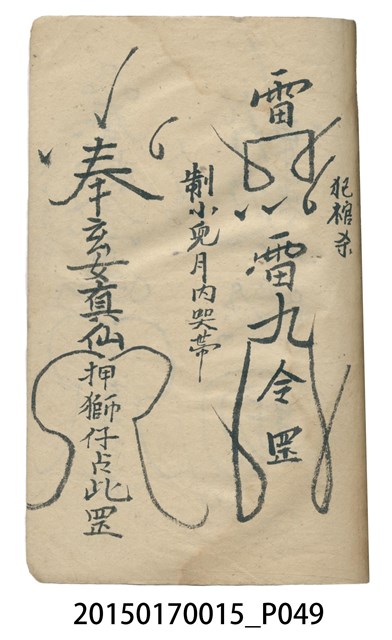 犯棺杀
雷
雷九令罡
制小兒月内哭帶
奉玄女真仙押獅仔占此罡
20150170015_P049